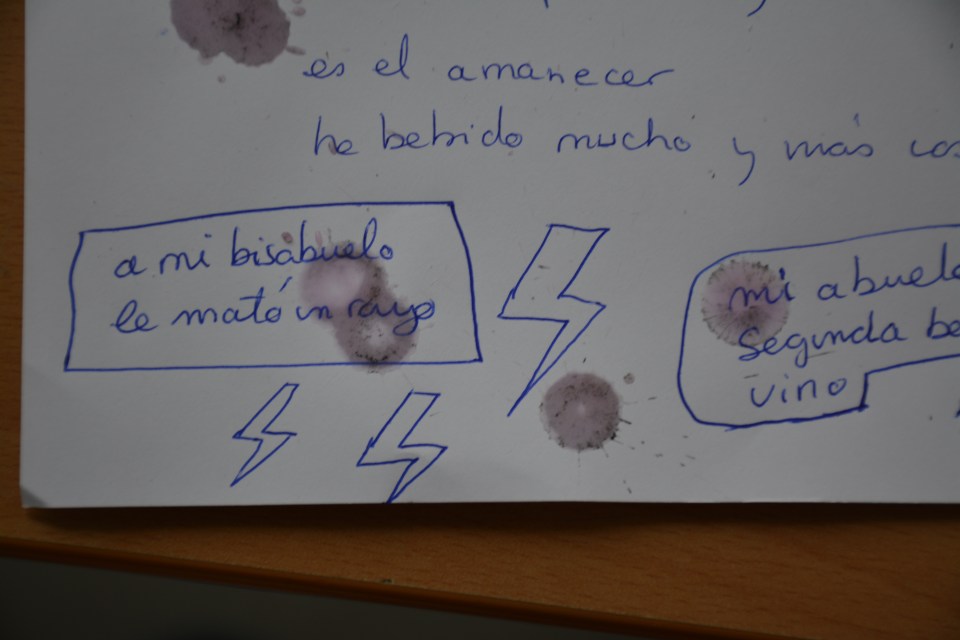 es el amanecer
he bebido mucho y más
a mi bisabuelo
le mató un rayo
mi abuelo
segunda
vino